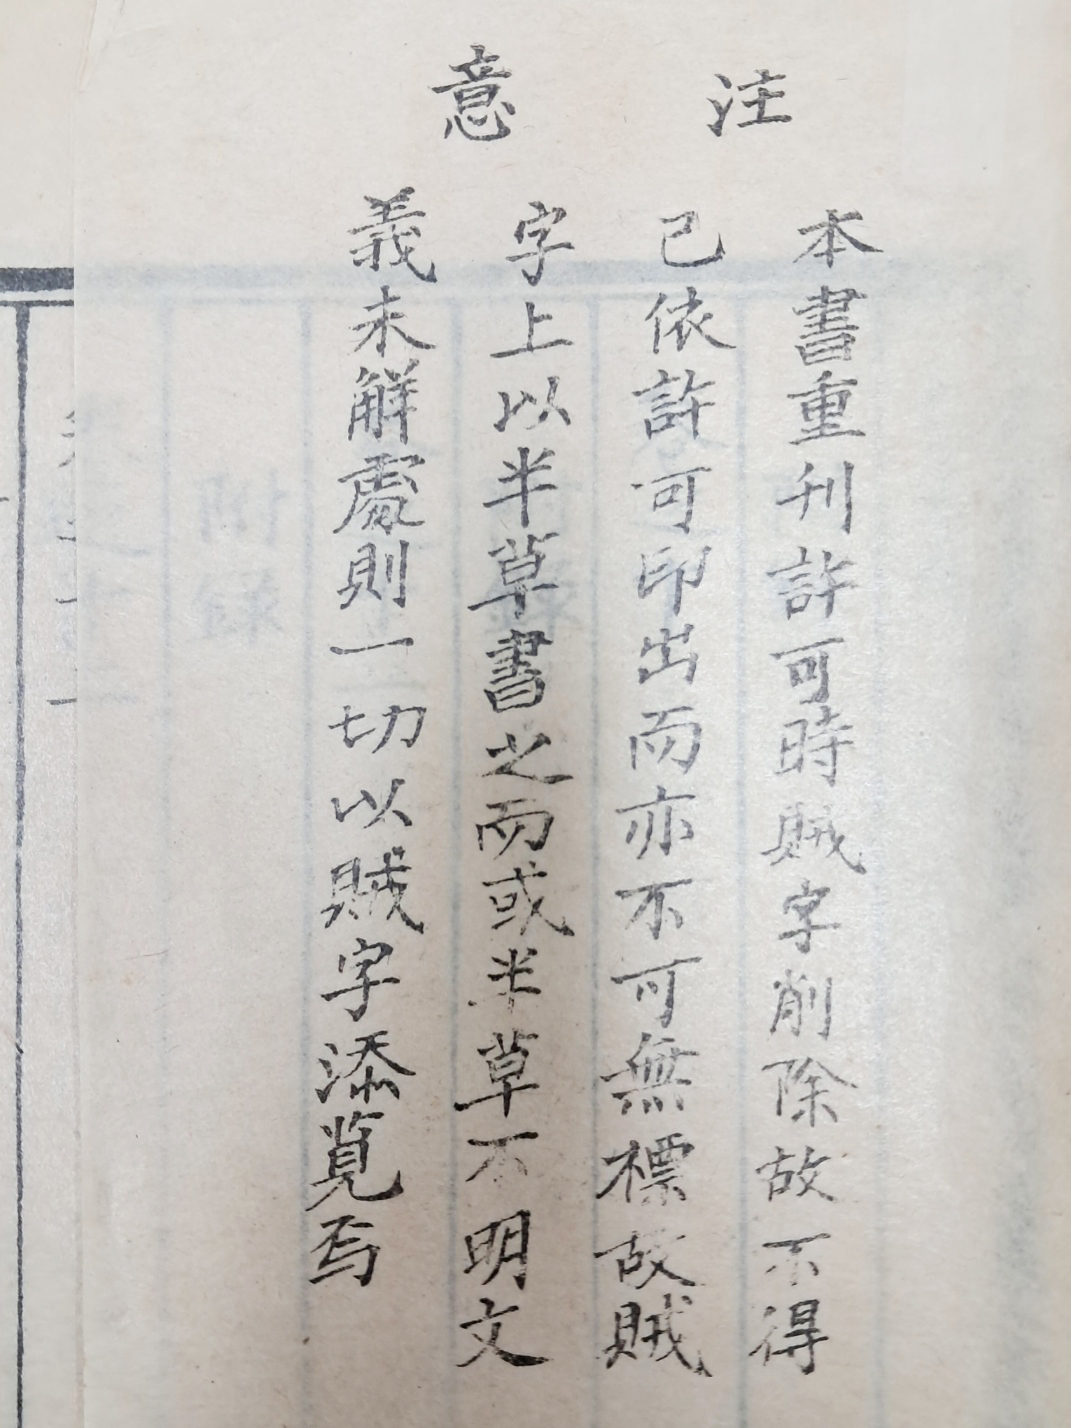 注意
本書重刊許可時賊字削除故不得
已依許可印出而亦不可無標故賊
字上以半草書之而或半草不明文
義未解處則一切以賊字添覓焉